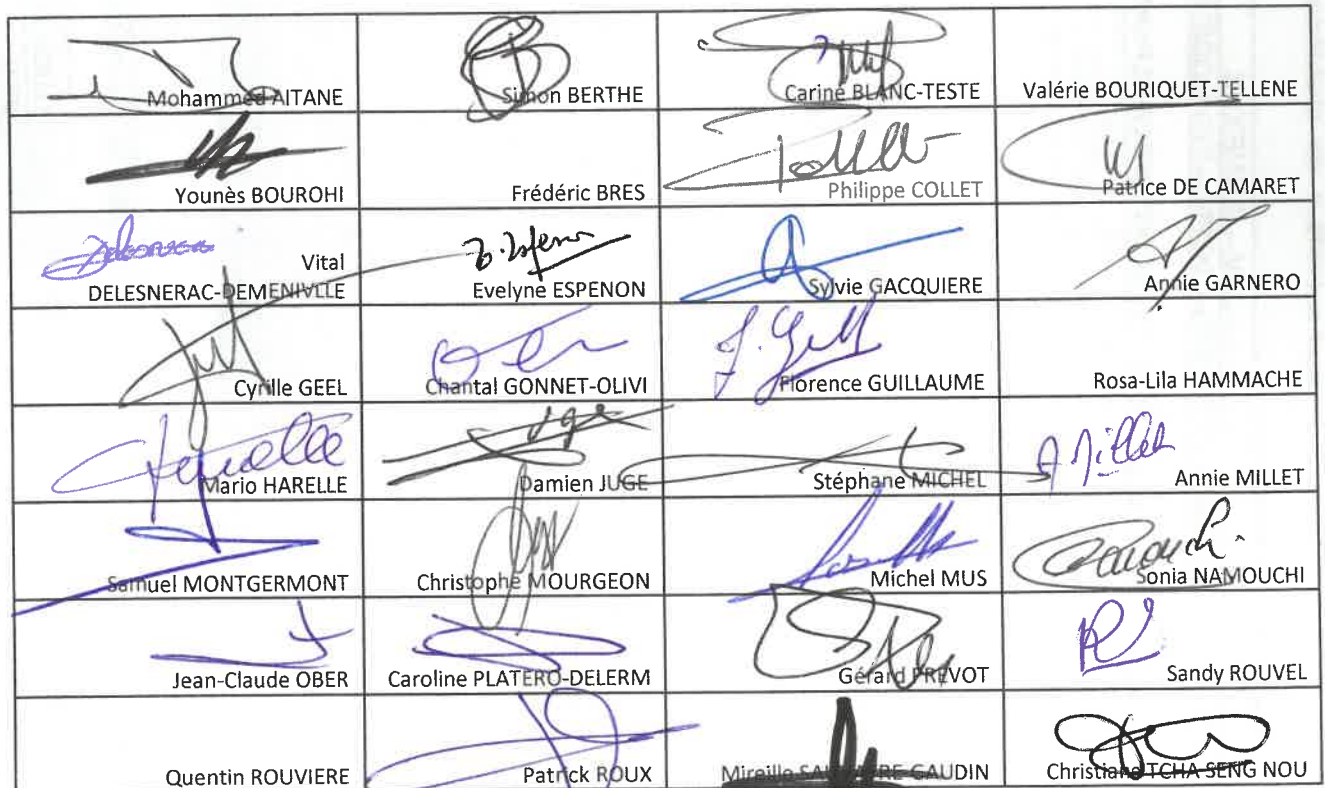 Mohammed AITANE
Simon BERTHE
Carine BLANC-TESTE
Valérie BOURIQUET-TELLENE
Younès BOUROHI
Frédéric BRES
Philippe COLLET
Patrice DE CAMARET
Vital
DELESNERAC-DEMENIVLLE
Evelyne ESPENON
Sylvie GACQUIERE
Annie GARNERO
Cyrille GEEL
Chantal GONNET-OLIVI
Florence GUILLAUME
Rosa-Lila HAMMACHE
Mario HARELLE
Damien JUGE
Stéphane MICHEL
Annie MILLET
Samuel MONTGERMONT
Christophe MOURGEON
Michel MUS
Sonia NAMOUCHI
Jean-Claude OBER
Caroline PLATERO-DELERM
Gérard PREVOT
Sandy ROUVEL
Quentin ROUVIERE
Patrick ROUX
Mireille GAUDIN
Christiane TCHA SENG NOU